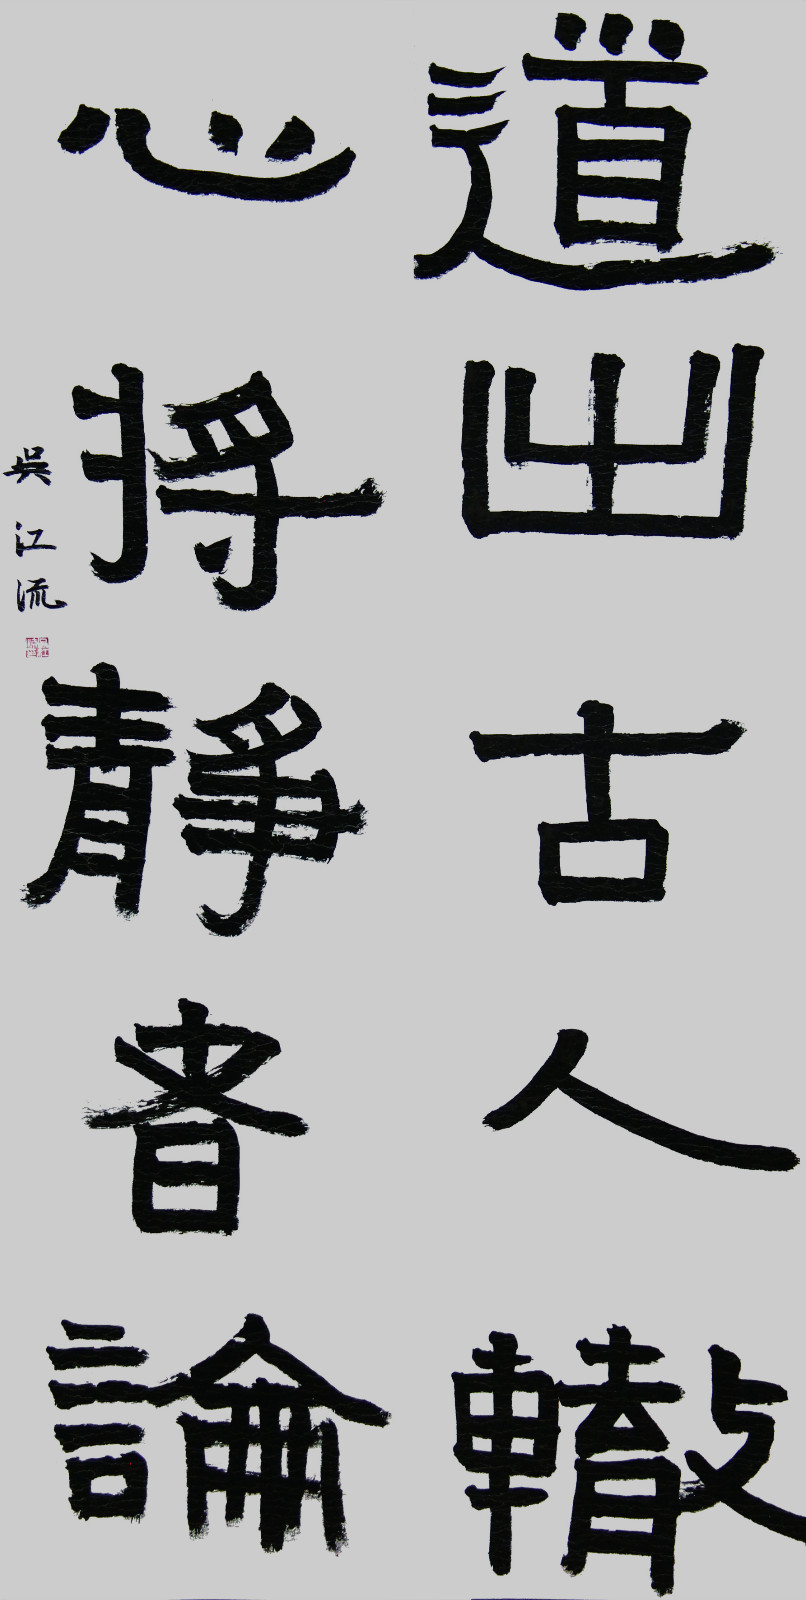 道出古人轍
心將靜者論
吳江流